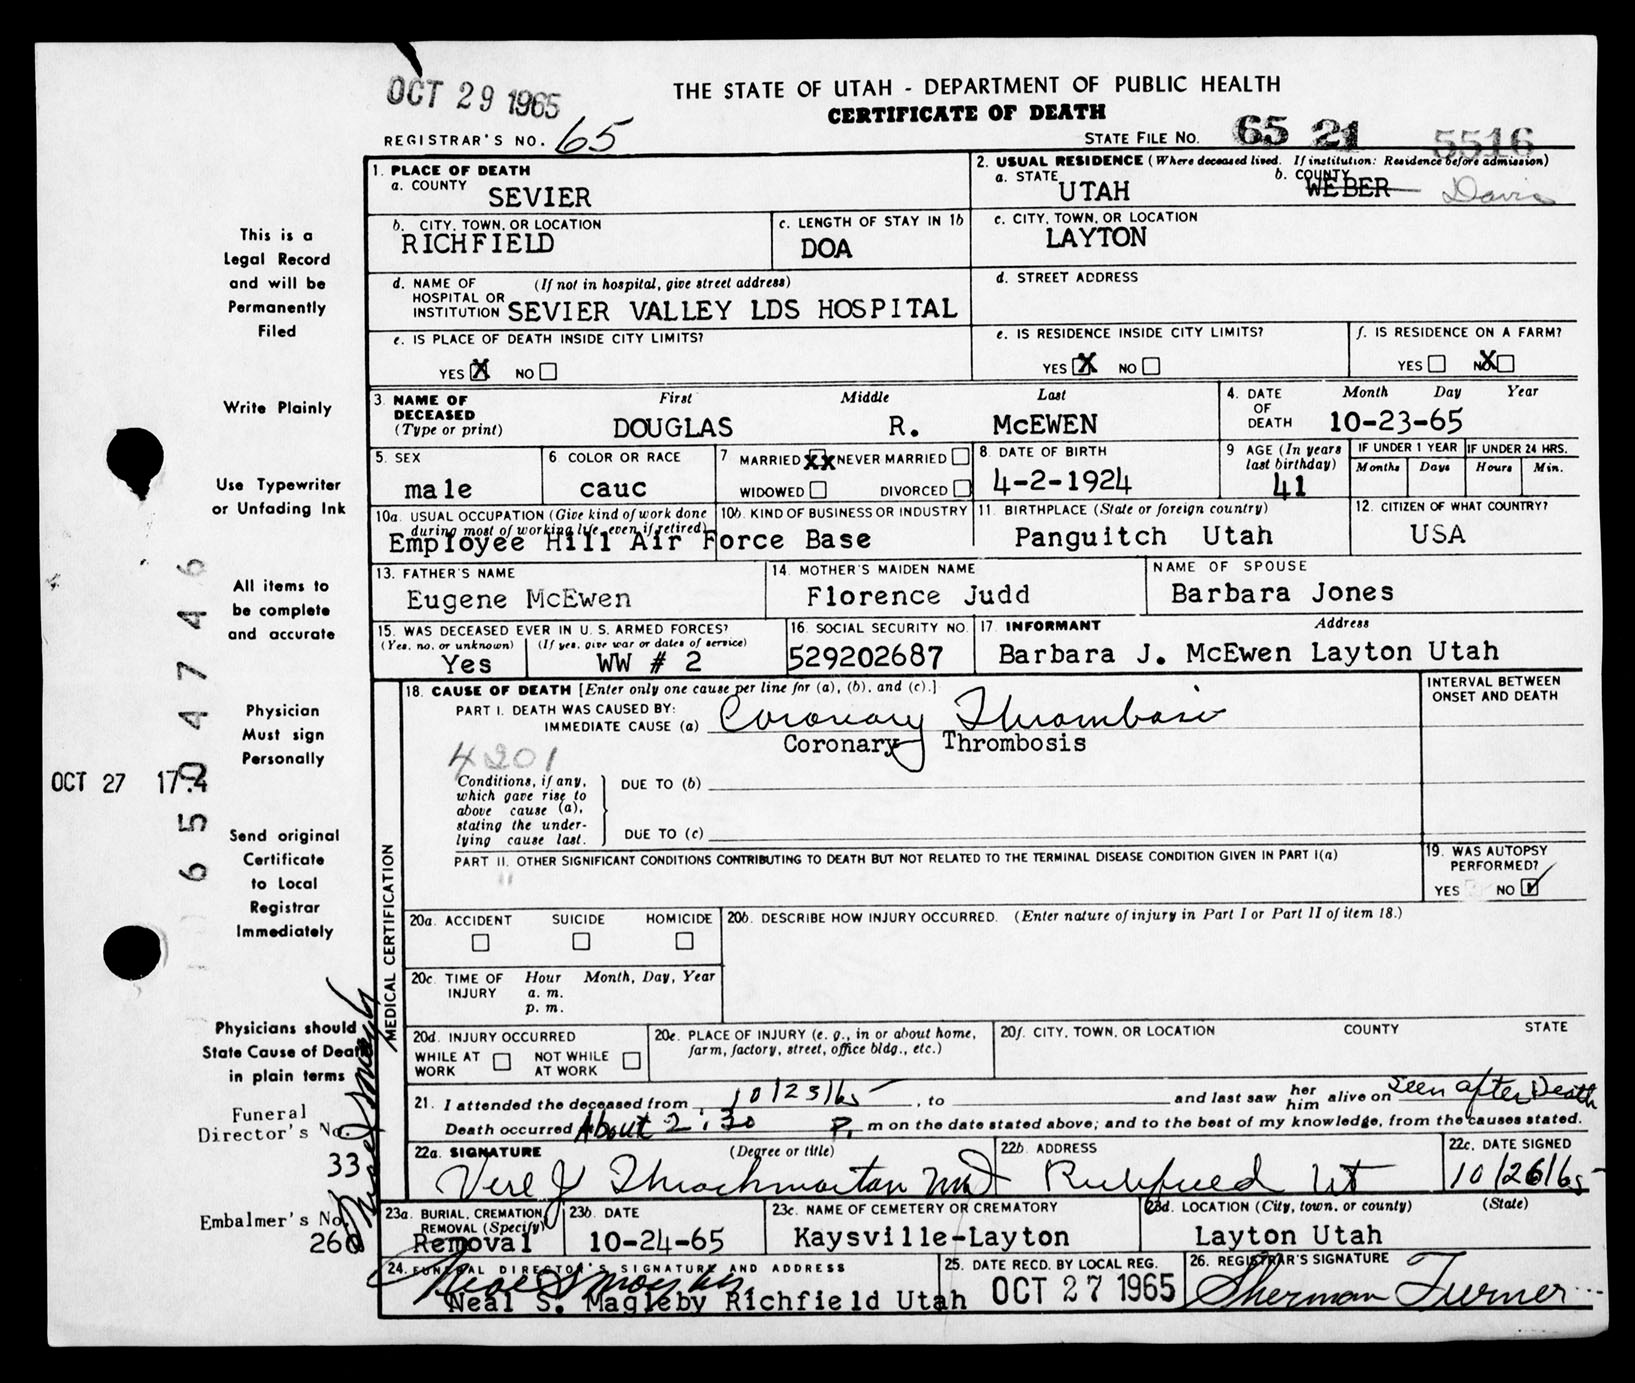 OCT 29 1965
THE STATE OF UTAH - DEPARTMENT OF PUBLIC HEALTH
CERTIFICATE OF DEATH
REGISTRAR'S NO. 65
STATE FILE NO. 65 21 5516
1. PLACE OF DEATH
a. COUNTY
SEVIER
2. USUAL RESIDENCE (Where deceased lived. If institution: Residence before admission)
a. STATE UTAH
b. COUNTY WEBER Davis
b. CITY, TOWN, OR LOCATION
RICHFIELD
c. LENGTH OF STAY IN 1b
DOA
c. CITY, TOWN, OR LOCATION
LAYTON
d. NAME OF HOSPITAL OR INSTITUTION
(If not in hospital, give street address)
SEVIER VALLEY LDS HOSPITAL
d. STREET ADDRESS
e. IS PLACE OF DEATH INSIDE CITY LIMITS?
YES X NO
e. IS RESIDENCE INSIDE CITY LIMITS?
YES X NO
f. IS RESIDENCE ON A FARM?
YES NO X
3. NAME OF DECEASED
(Type or print)
First Middle Last
DOUGLAS R. McEWEN
4. DATE OF DEATH
Month Day Year
10-23-65
5. SEX
male
6 COLOR OR RACE
cauc
7 MARRIED XX NEVER MARRIED
WIDOWED DIVORCED
8. DATE OF BIRTH
4-2-1924
9 AGE (In years last birthday)
41
IF UNDER 1 YEAR
Months Days
IF UNDER 24 HRS.
Hours Min.
10a. USUAL OCCUPATION (Give kind of work done during most of working life, even if retired)
10b. KIND OF BUSINESS OR INDUSTRY
Employee Hill Air Force Base
11. BIRTHPLACE (State or foreign country)
Panguitch Utah
12. CITIZEN OF WHAT COUNTRY?
USA
13. FATHER'S NAME
Eugene McEwen
14. MOTHER'S MAIDEN NAME
Florence Judd
NAME OF SPOUSE
Barbara Jones
15. WAS DECEASED EVER IN U.S. ARMED FORCES?
(Yes, no, or unknown) (If yes, give war or dates of service)
Yes WW # 2
16. SOCIAL SECURITY NO.
529202687
17. INFORMANT Address
Barbara J. McEwen Layton Utah
MEDICAL CERTIFICATION
18. CAUSE OF DEATH [Enter only one cause per line for (a), (b), and (c).]
INTERVAL BETWEEN ONSET AND DEATH
PART I. DEATH WAS CAUSED BY:
IMMEDIATE CAUSE (a) Coronary Thrombosis
Coronary Thrombosis
4201
Conditions, if any, which gave rise to above cause (a), stating the underlying cause last.
DUE TO (b)
DUE TO (c)
PART II. OTHER SIGNIFICANT CONDITIONS CONTRIBUTING TO DEATH BUT NOT RELATED TO THE TERMINAL DISEASE CONDITION GIVEN IN PART I(a)
19. WAS AUTOPSY PERFORMED?
YES NO
20a. ACCIDENT SUICIDE HOMICIDE
20b. DESCRIBE HOW INJURY OCCURRED. (Enter nature of injury in Part I or Part II of item 18.)
20c. TIME OF INJURY
Hour Month, Day, Year
a. m.
p. m.
20d. INJURY OCCURRED
WHILE AT WORK NOT WHILE AT WORK
20e. PLACE OF INJURY (e. g., in or about home, farm, factory, street, office bldg., etc.)
20f. CITY, TOWN, OR LOCATION COUNTY STATE
21. I attended the deceased from 10/23/65, to and last saw her him alive on Seen after Death
Death occurred About 2:30 P. m on the date stated above; and to the best of my knowledge, from the causes stated.
22a. SIGNATURE (Degree or title)
Verl J Throckmorton MD
22b. ADDRESS
Richfield Ut
22c. DATE SIGNED
10/26/65
23a. BURIAL, CREMATION, REMOVAL (Specify)
Removal
23b. DATE
10-24-65
23c. NAME OF CEMETERY OR CREMATORY
Kaysville-Layton
23d. LOCATION (City, town, or county) (State)
Layton Utah
24. FUNERAL DIRECTOR'S SIGNATURE AND ADDRESS
Neal S Magleby
Neal S. Magleby Richfield Utah
25. DATE RECD. BY LOCAL REG.
OCT 27 1965
26. REGISTRAR'S SIGNATURE
Sherman Turner
This is a
Legal Record
and will be
Permanently
Filed
Write Plainly
Use Typewriter
or Unfading Ink
All items to
be complete
and accurate
Physician
Must sign
Personally
Send original
Certificate
to Local
Registrar
Immediately
Physicians should
State Cause of Death
in plain terms
Funeral
Director's No.
33
Embalmer's No.
260
Neal S Magleby
OCT 27 17.4
65047446